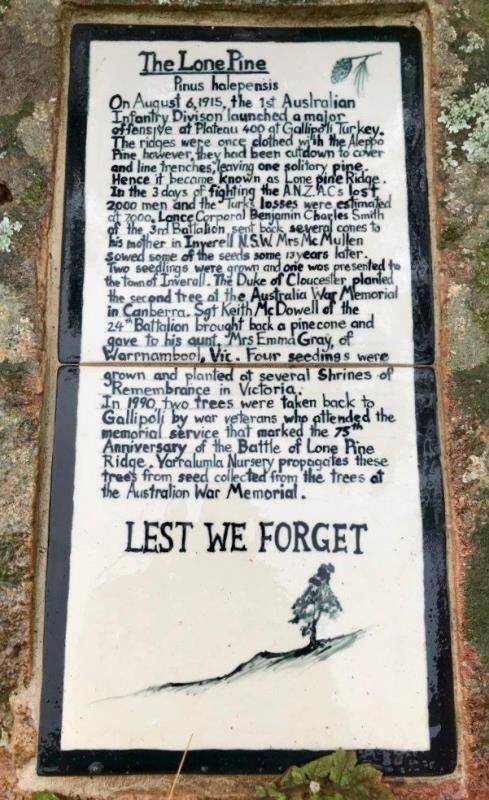 The Lone Pine
Pinus halepensis
On August 6, 1915, the 1st Australian
Infantry Divison launched a major
offensive at Plateau 400 at Gallipoli Turkey.
The ridges were once clothed with the Aleppo
Pine however, they had been cut down to cover
and line trenches, leaving one solitary pine.
Hence it became known as Lone pine Ridge.
In the 3 days of fighting the A.N.Z.ACs lost
2000 men and the Turks losses were estimated
at 7000. Lance Corporal Benjamin Charles Smith
of the 3rd Battalion sent back several cones to
his mother in Inverell N.S.W. Mrs McMullen
sowed some of the seeds some 13 years later.
Two seedlings were grown and one was presented to
the town of Inverall. The Duke of Cloucester planted
the second tree at the Australia War Memorial
in Canberra. Sgt Keith McDowell of the
24th Battalion brought back a pinecone and
gave to his aunt. Mrs Emma Gray, of
Warrnambool, Vic. Four seedings were
grown and planted at several Shrines of
Remembrance in Victoria.
In 1990, two trees were taken back to
Gallipoli by war veterans who attended the
memorial service that marked the 75th
Anniversary of the Battle of Lone Pine
Ridge. Yarralumla Nursery propagates these
trees from seed collected from the trees at
the Australian War Memorial.
LEST WE FORGET